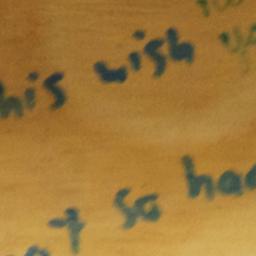 his wish
t so ha